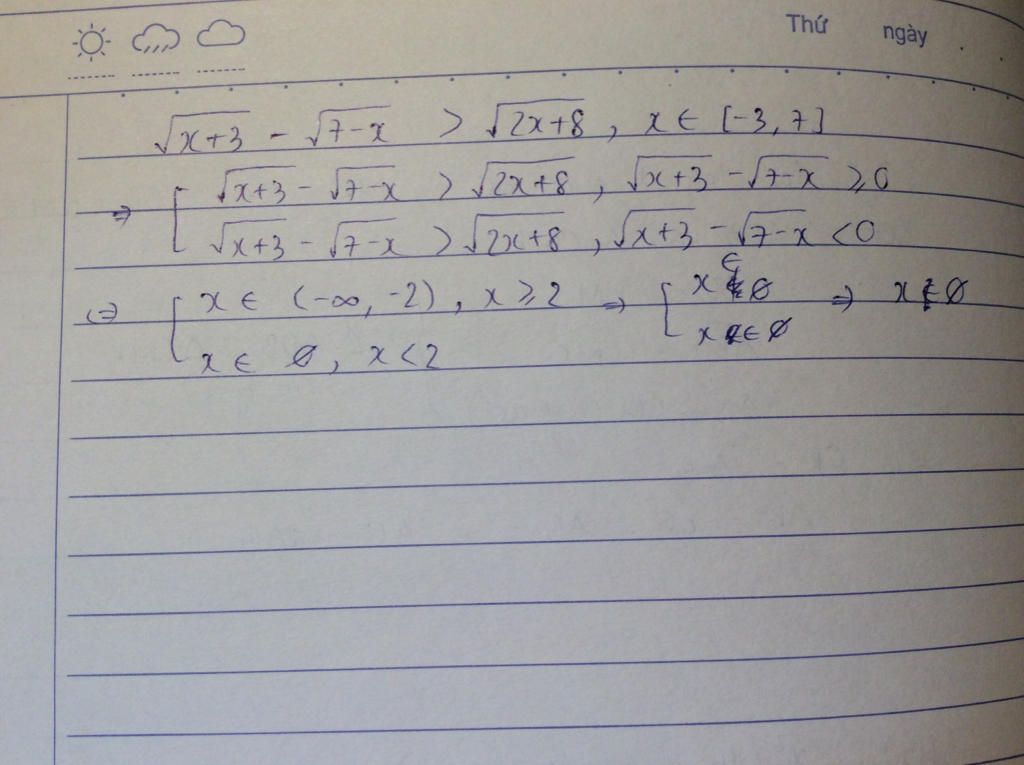 Thứ ngày .
√(x+3) - √(7-x) > √(2x+8) , x ∈ [-3, 7]
⇒ [ √(x+3) - √(7-x) > √(2x+8) , √(x+3) - √(7-x) ⩾ 0
√(x+3) - √(7-x) > √(2x+8) , √(x+3) - √(7-x) < 0
⇔ [ x ∈ (-∞, -2) , x ⩾ 2 ⇒ [ x ∈ ∅ ⇒ x ∈ ∅
x ∈ ∅ , x < 2 x ∈ ∅